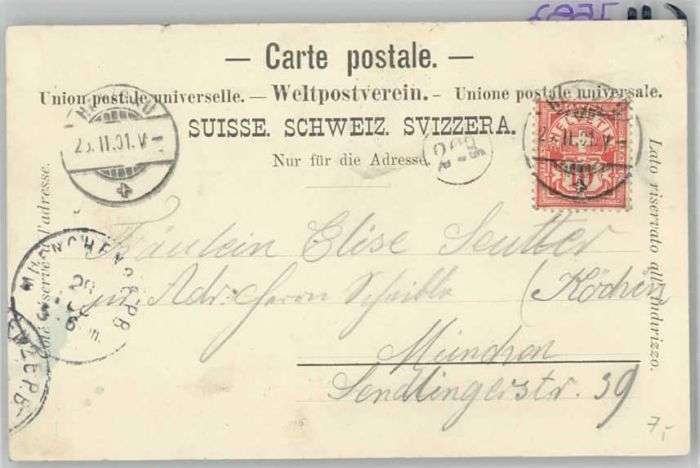 — Carte postale. —
Union postale universelle. — Weltpostverein. - Unione postale universale.
SUISSE. SCHWEIZ. SVIZZERA.
Nur für die Adresse.
Côté réservé à l'adresse.
Lato riservato all'indirizzo.
23.II.01.V-
II.01.V-
HELVETIA
10
MÜNCHEN
Fräulein Elise Seutter
Adr: Herrn Scheible (Köchin)
München
Sendlingerstr. 39
7,-